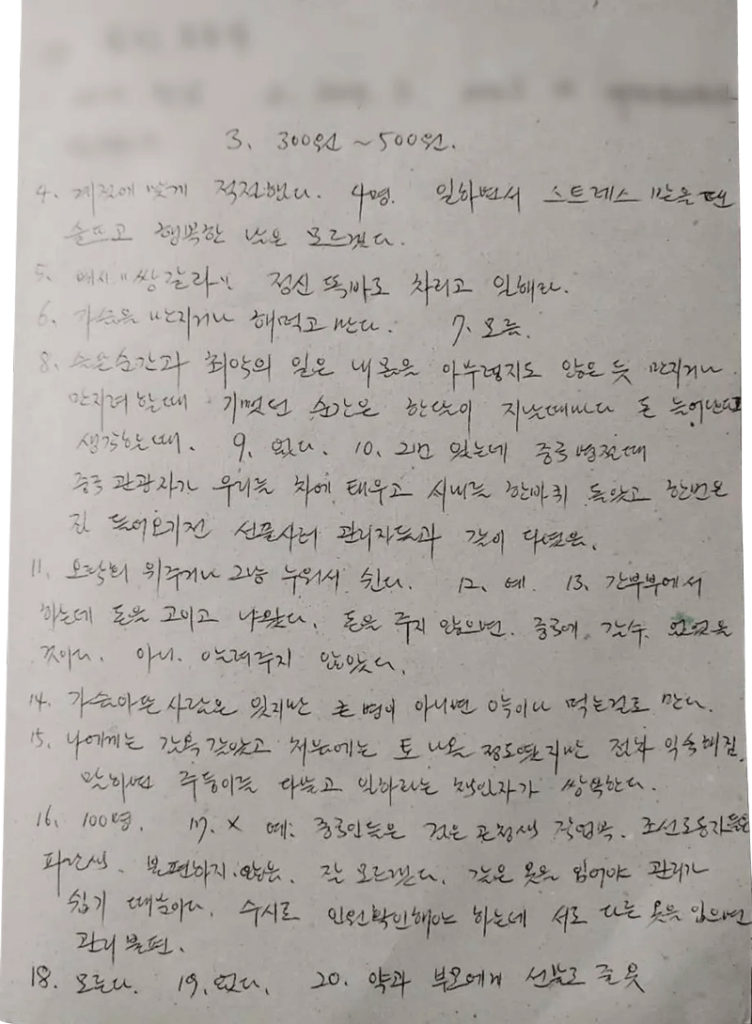 3. 300원 ~ 500원.
4. 계절에 맞게 적전했다. 4명. 일하면서 스트레스 받을때
눈뜨고 행복한 날은 모르겠다.
5. 매서 "쌍갈라" 정신 똑바로 차리고 일해라.
6. 가슴을 만지거나 해먹고 만다. 7. 모름.
8. 순간과 최악의 일은 내 몸을 아무렇지도 않은 듯 만지거나
만지려 할때 기뻤던 순간은 한달이 지날때마다 돈 늘어난다
생각하는때. 9. 없다. 10. 있는데 중국 명절때
중국 관광자가 우리를 차에 태우고 시내를 한바퀴 돌았고 한번은
집 들어오기전 선물사러 관리자들과 같이 다녔음.
11. 오락회 위주거나 그냥 누워서 쉰다. 12. 예. 13. 간부부에서
하는데 돈을 고이고 나왔다. 돈을 주지 않으면. 중국에 갈수 없었을
것이다. 아니. 알려주지 않았다.
14. 가슴아픈 사람은 있지만 큰 병이 아니면 약이나 먹는걸로 만다.
15. 나에게는 간욕 같았고 처음에는 토 나올 정도였지만 점차 익숙해짐.
말하면 주둥이를 다물고 일하라는 책임자가 쌍욕한다.
16. 100명. 17. X 예: 중국인들은 검은 곤청색 작업복. 조선로동자들은
파란색. 불편하지 않음. 잘 모르겠다. 같은 옷을 입어야 관리가
쉽기 때문이다. 수시로 인원확인해야 하는데 서로 다른 옷을 입으면
관리 불편.
18. 모른다. 19. 없다. 20. 약과 부모에게 선물로 줄 옷